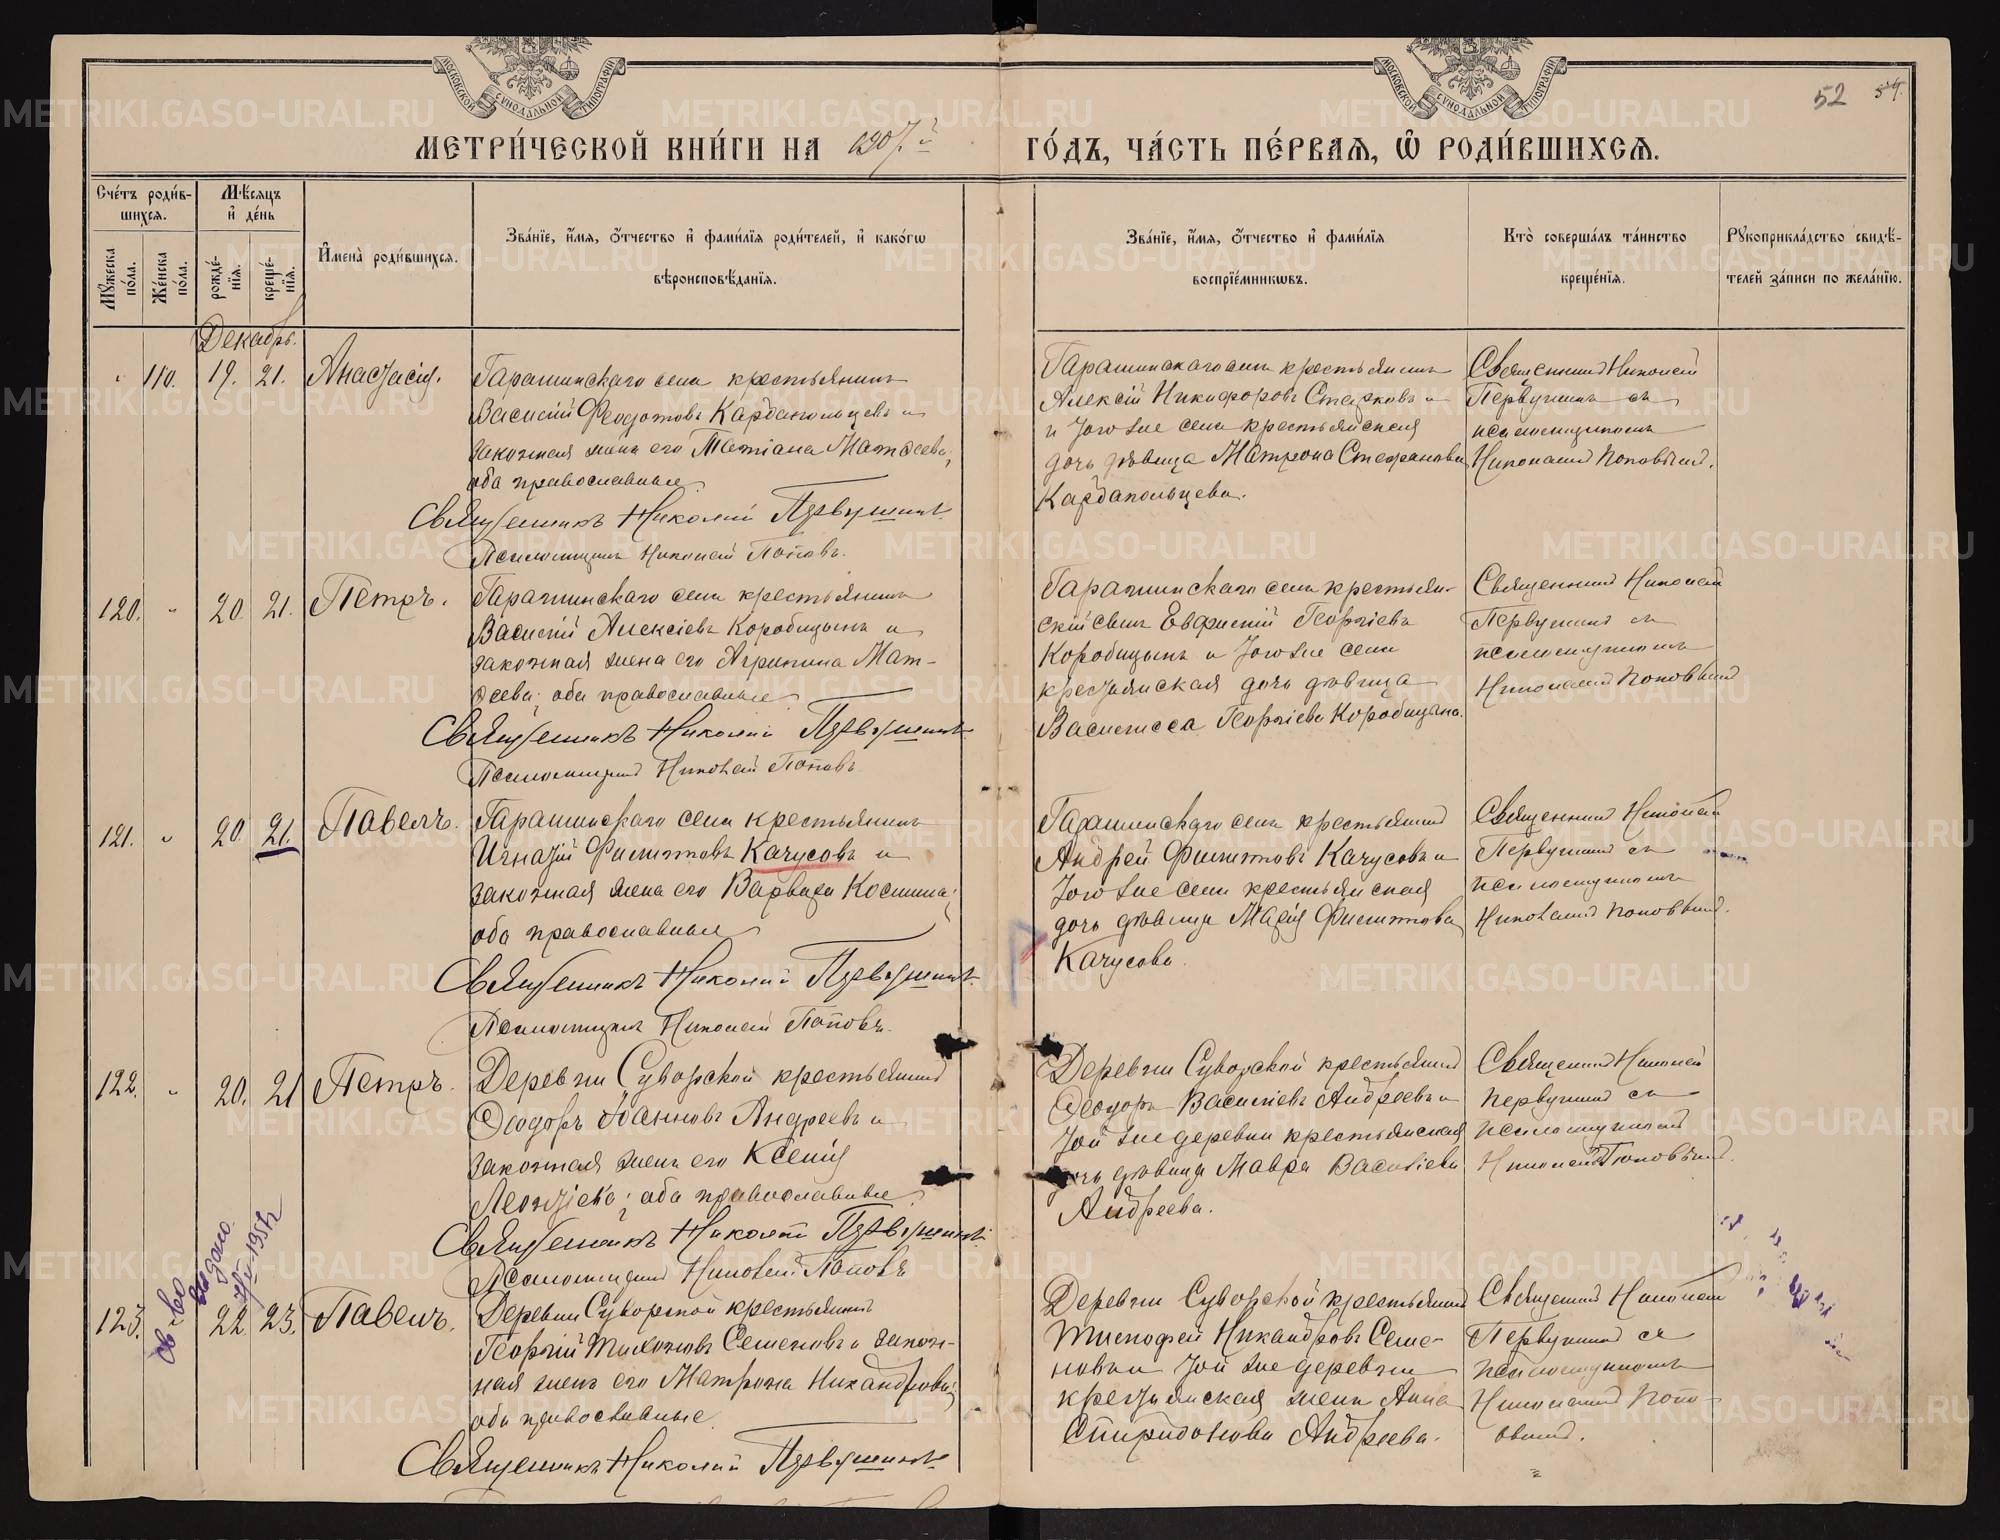 52 54.
МОСКОВСКОЙ СУНОДАЛЬНОЙ ТИПОГРАФІИ
МОСКОВСКОЙ СУНОДАЛЬНОЙ ТИПОГРАФІИ
МЕТРИ́ЧЕСКОЙ КНИ́ГИ НА 1907й ГО́ДЪ, ЧА́СТЬ ПЕ́РВАѦ, Ѡ РОДИ́ВШИХСѦ.
Сче́тъ роди́в-
шихсѧ.
Мꙋ́жеска
по́ла.
Же́нска
по́ла.
Мѣ́сѧцъ
и҆ де́нь
рожде́-
нїѧ.
креще́-
нїѧ.
И҆мена̀ роди́вшихсѧ.
Зва́нїе, и҆́мѧ, ѻ҆́тчество и҆ фами́лїѧ роди́телей, и҆ како́гѡ
вѣроисповѣ́данїѧ.
Зва́нїе, и҆́мѧ, ѻ҆́тчество и҆ фами́лїѧ
воспрїе́мникѡвъ.
Кто̀ соверша́лъ та́инство
креще́нїѧ.
Рꙋкоприкла́дство свидѣ́-
телей за́писи по жела́нїю.
Декабрь.
" 110. 19. 21. Анастасія.
Гарашинскаго села крестьянинъ
Василій Ѳеодотовъ Кардапольцевъ и
законная жена его Татіана Матѳеева,
оба православные
Священникъ Николай Первушинъ.
Псаломщикъ Николай Поповъ.
Гарашинскаго села крестьянинъ
Алексій Никифоровъ Старковъ и
и того же села крестьянская
дочь дѣвица Матрона Стефанова
Кардапольцева.
Священникъ Николай
Первушинъ съ
псаломщикомъ
Николаемъ Поповымъ.
120. " 20. 21. Петръ.
Гарашинскаго села крестьянинъ
Василій Алексіевъ Коробицынъ и
законная жена его Агрипина Мат-
ѳеева; оба православные
Священникъ Николай Первушинъ
Псаломщикъ Николай Поповъ
Гарашинскаго села крестьян-
скій сынъ Евфимій Георгіевъ
Коробицынъ и того же села
крестьянская дочь дѣвица
Васильисса Георгіева Коробицына.
Священникъ Николай
Первушинъ съ
псаломщикомъ
Николаемъ Поповымъ
121. " 20. 21. Павелъ.
Гарашинскаго села крестьянинъ
Игнатій Филипповъ Качусовъ и
законная жена его Варвара Космина;
оба православные
Священникъ Николай Первушинъ.
Псаломщикъ Николай Поповъ.
Гарашинскаго села крестьянинъ
Андрей Филипповъ Качусовъ и
того же села крестьянская
дочь дѣвица Марія Филиппова
Качусова.
Священникъ Николай
Первушинъ съ
псаломщикомъ
Николаемъ Поповымъ.
122. " 20. 21 Петръ.
Деревни Суворской крестьянинъ
Ѳеодоръ Іоанновъ Андреевъ и
законная жена его Ксенія
Леонтіева; оба православные
Священникъ Николай Первушинъ.
Псаломщикъ Николай Поповъ
Деревни Суворской крестьянинъ
Ѳеодоръ Василіевъ Андреевъ и
той же деревни крестьянская
дочь дѣвица Мавра Василіева
Андреева.
Священникъ Николай
Первушинъ съ
псаломщикомъ
Николаемъ Поповымъ.
св-во выдано
1951г
123. 22. 23. Павелъ.
Деревни Суворской крестьянинъ
Георгій Тихоновъ Семеновъ и закон-
ная жена его Матрона Никандрова;
оба православные.
Священникъ Николай Первушинъ
Деревни Суворской крестьянинъ
Тимофей Никандровъ Семе-
новъ и той же деревни
крестьянская жена Анна
Спиридонова Андреева.
Священникъ Николай
Первушинъ съ
псаломщикомъ
Николаемъ Попо-
вымъ.
METRIKI.GASO-URAL.RU